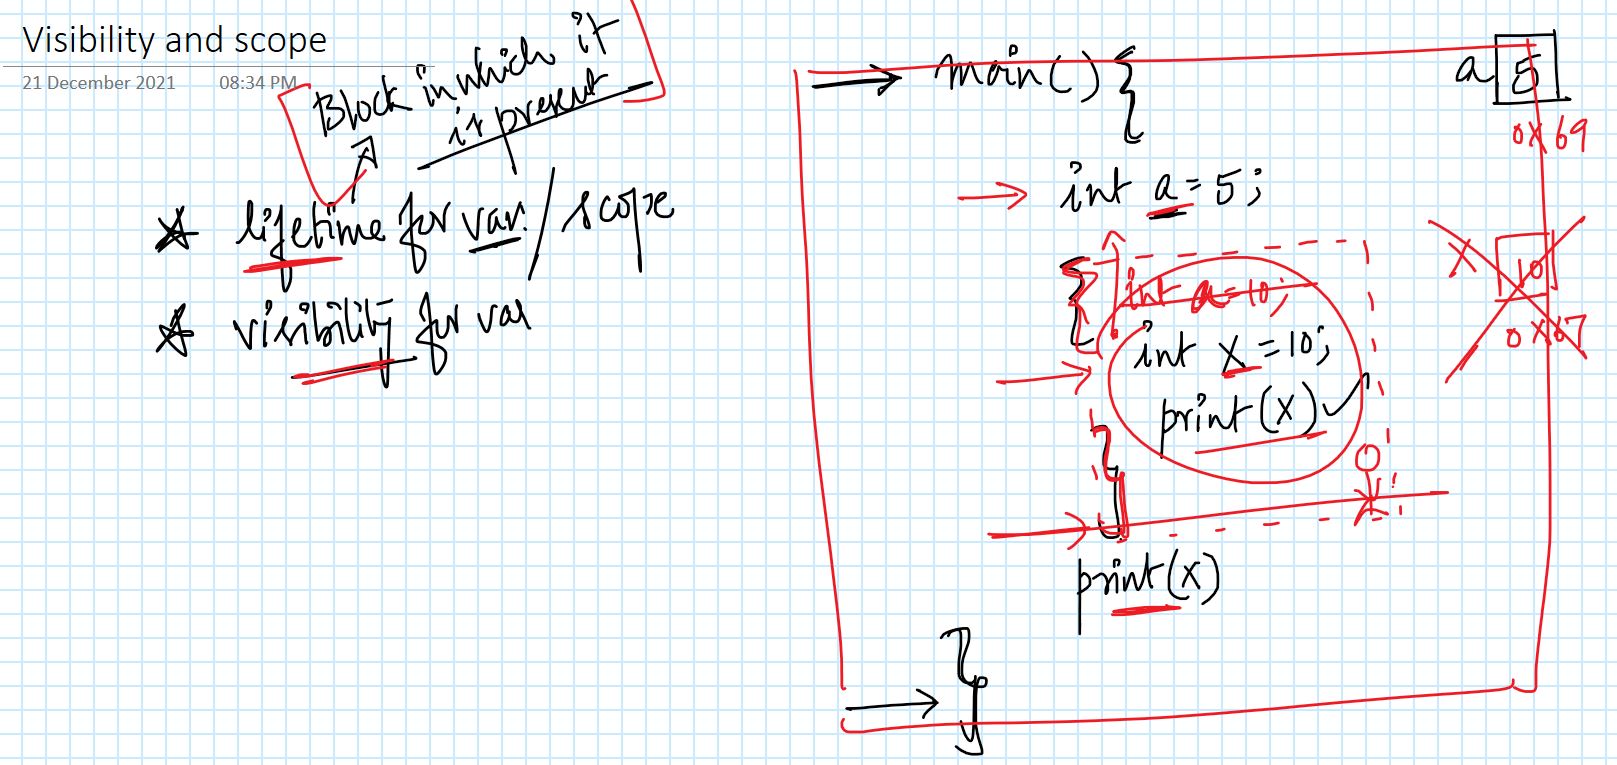 Visibility and scope
21 December 2021 08:34 PM
Block in which it
is present
lifetime for var. / scope
visibility for var
main() {
a 5
0x69
int a = 5;
{ int a = 10;
int x = 10;
print(x)
}
X 10
0x67
print(x)
}